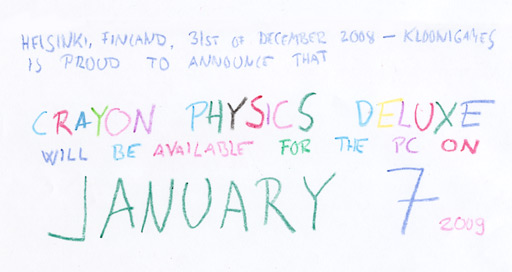 HELSINKI, FINLAND, 31ST OF DECEMBER 2008 – KLOONIGAMES
IS PROUD TO ANNOUNCE THAT
CRAYON PHYSICS DELUXE
WILL BE AVAILABLE FOR THE PC ON
JANUARY 7 2009